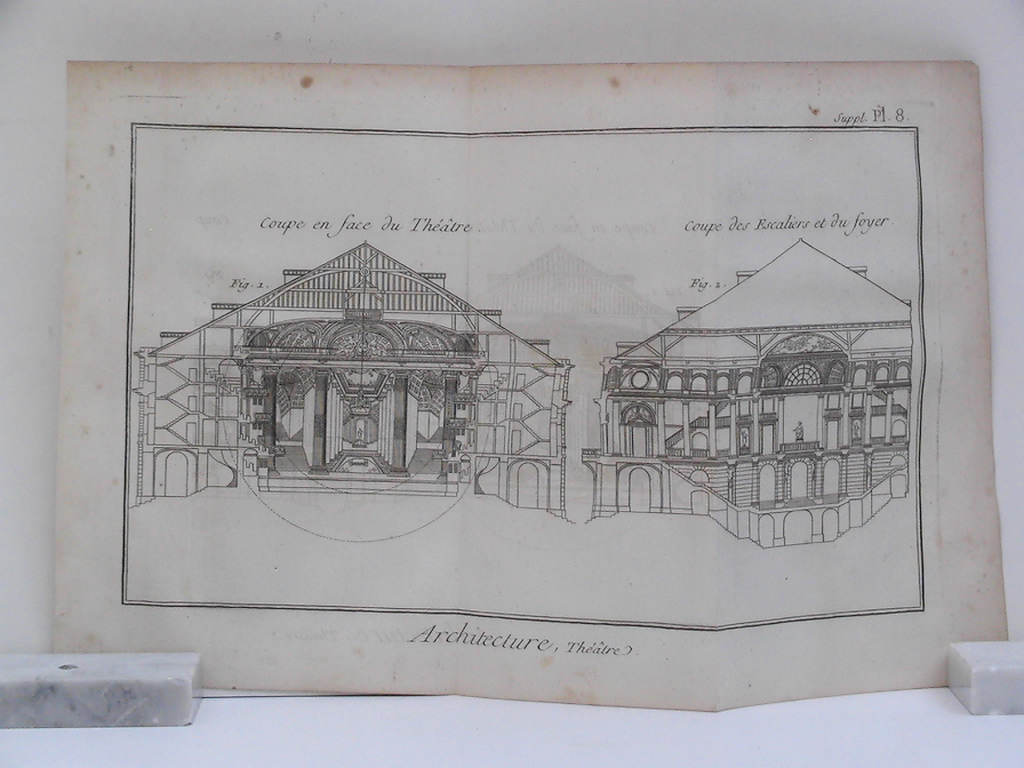 Suppl. Pl. 8.
Coupe en face du Théâtre
Coupe des Escaliers et du foyer
Fig. 1.
Fig. 2.
Architecture, Théâtre